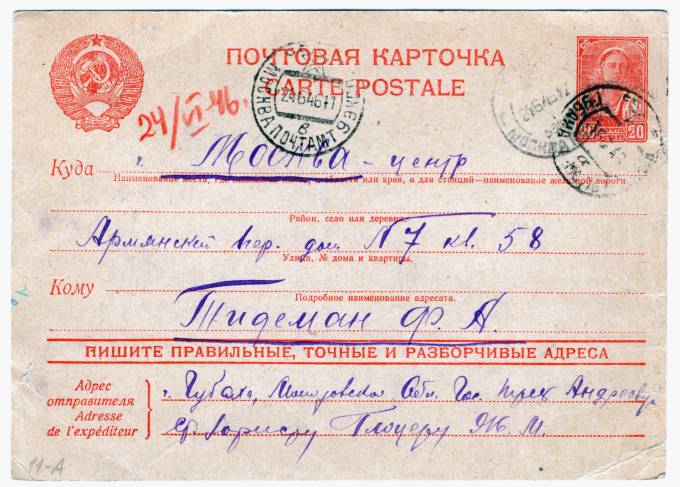 ПОЧТОВАЯ КАРТОЧКА
CARTE POSTALE
24/VI 46.
МОСКВА ПОЧТАМТ
2464617
МОСКВА
20
Куда г. Москва - центр
Наименование места, где находится почта, области или края, а для станций—наименование железной дороги
Район, село или деревня
Армянский пер. дом N 7 кв. 58
Улица, № дома и квартиры.
Кому
Подробное наименование адресата.
Тидеман Ф. А.
ПИШИТЕ ПРАВИЛЬНЫЕ, ТОЧНЫЕ И РАЗБОРЧИВЫЕ АДРЕСА
Адрес
отправителя
Adresse
de l'expéditeur
г. Губаха, Молотовской Обл.
Глоцеру Я. М.
11-А